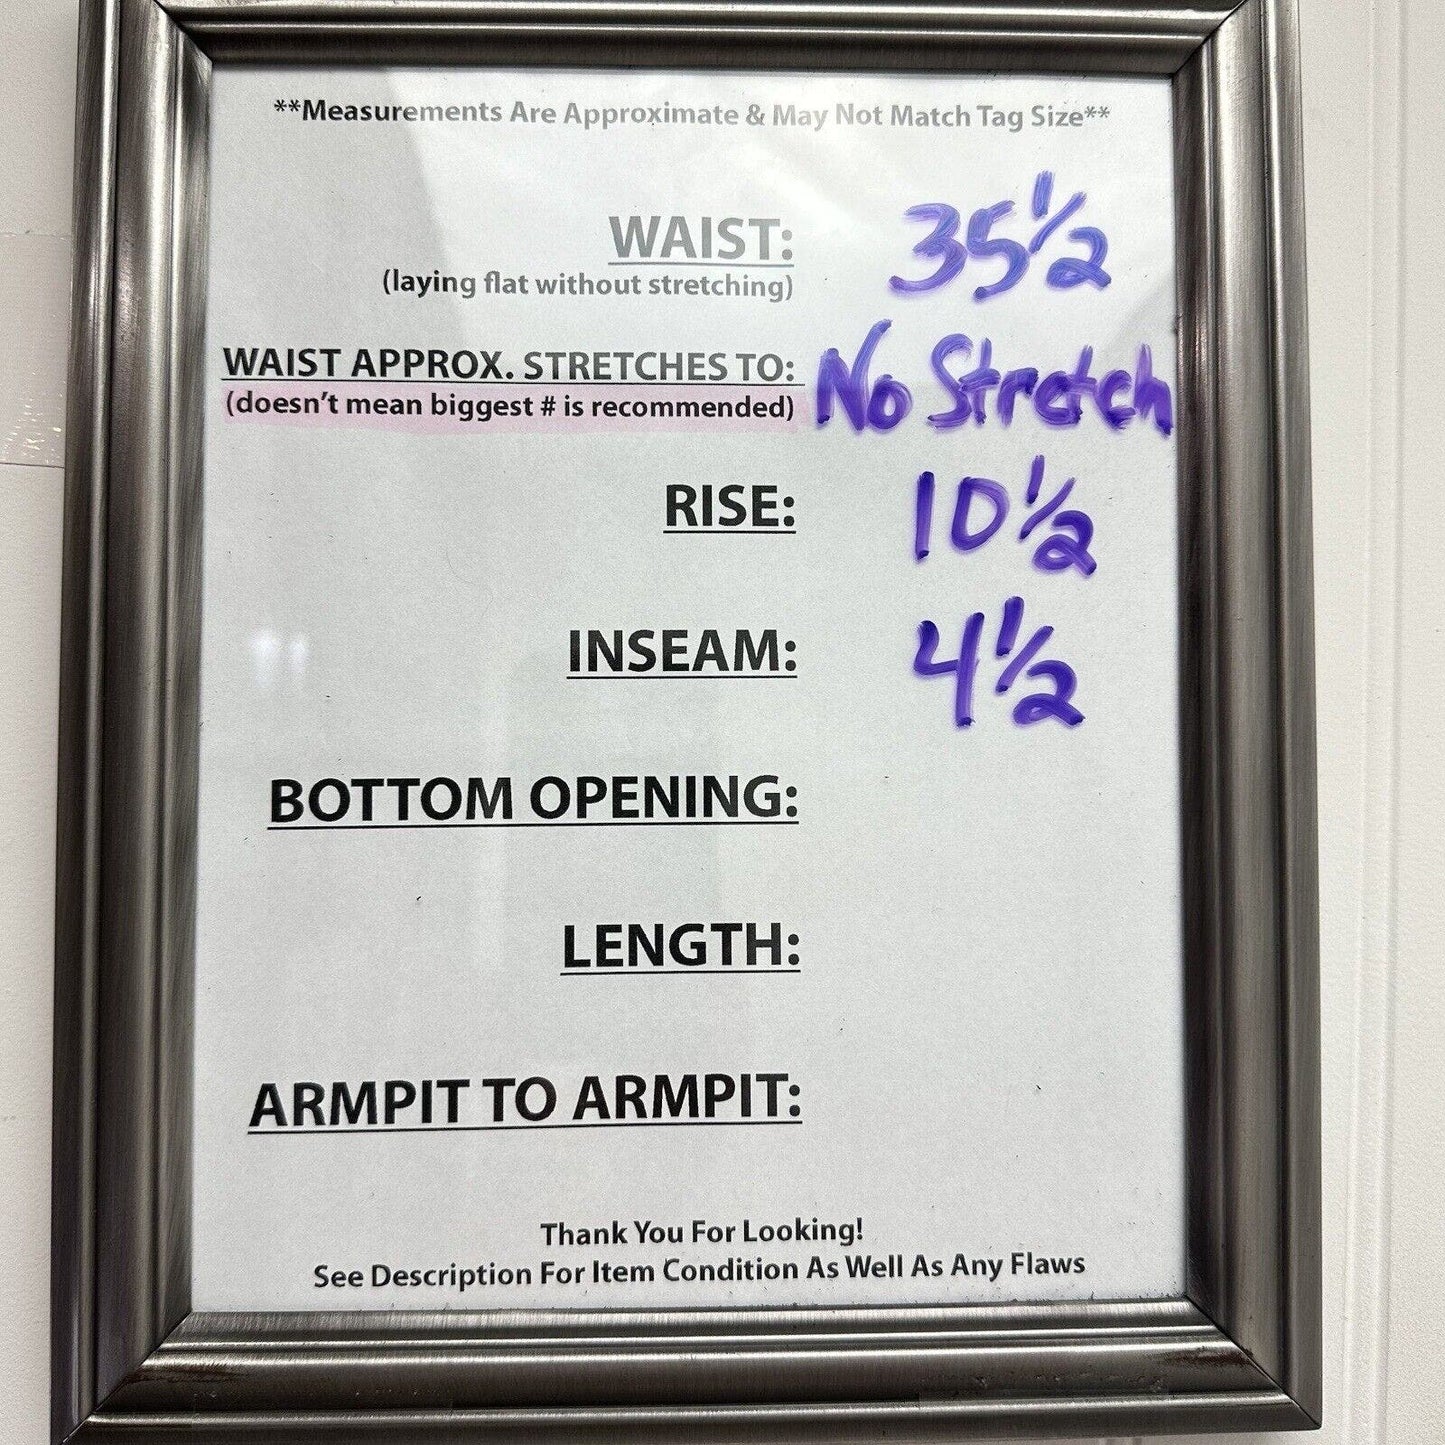 **Measurements Are Approximate & May Not Match Tag Size**
WAIST: 35 1/2
(laying flat without stretching)
WAIST APPROX. STRETCHES TO: No Stretch
(doesn't mean biggest # is recommended)
RISE: 10 1/2
INSEAM: 4 1/2
BOTTOM OPENING:
LENGTH:
ARMPIT TO ARMPIT:
Thank You For Looking!
See Description For Item Condition As Well As Any Flaws